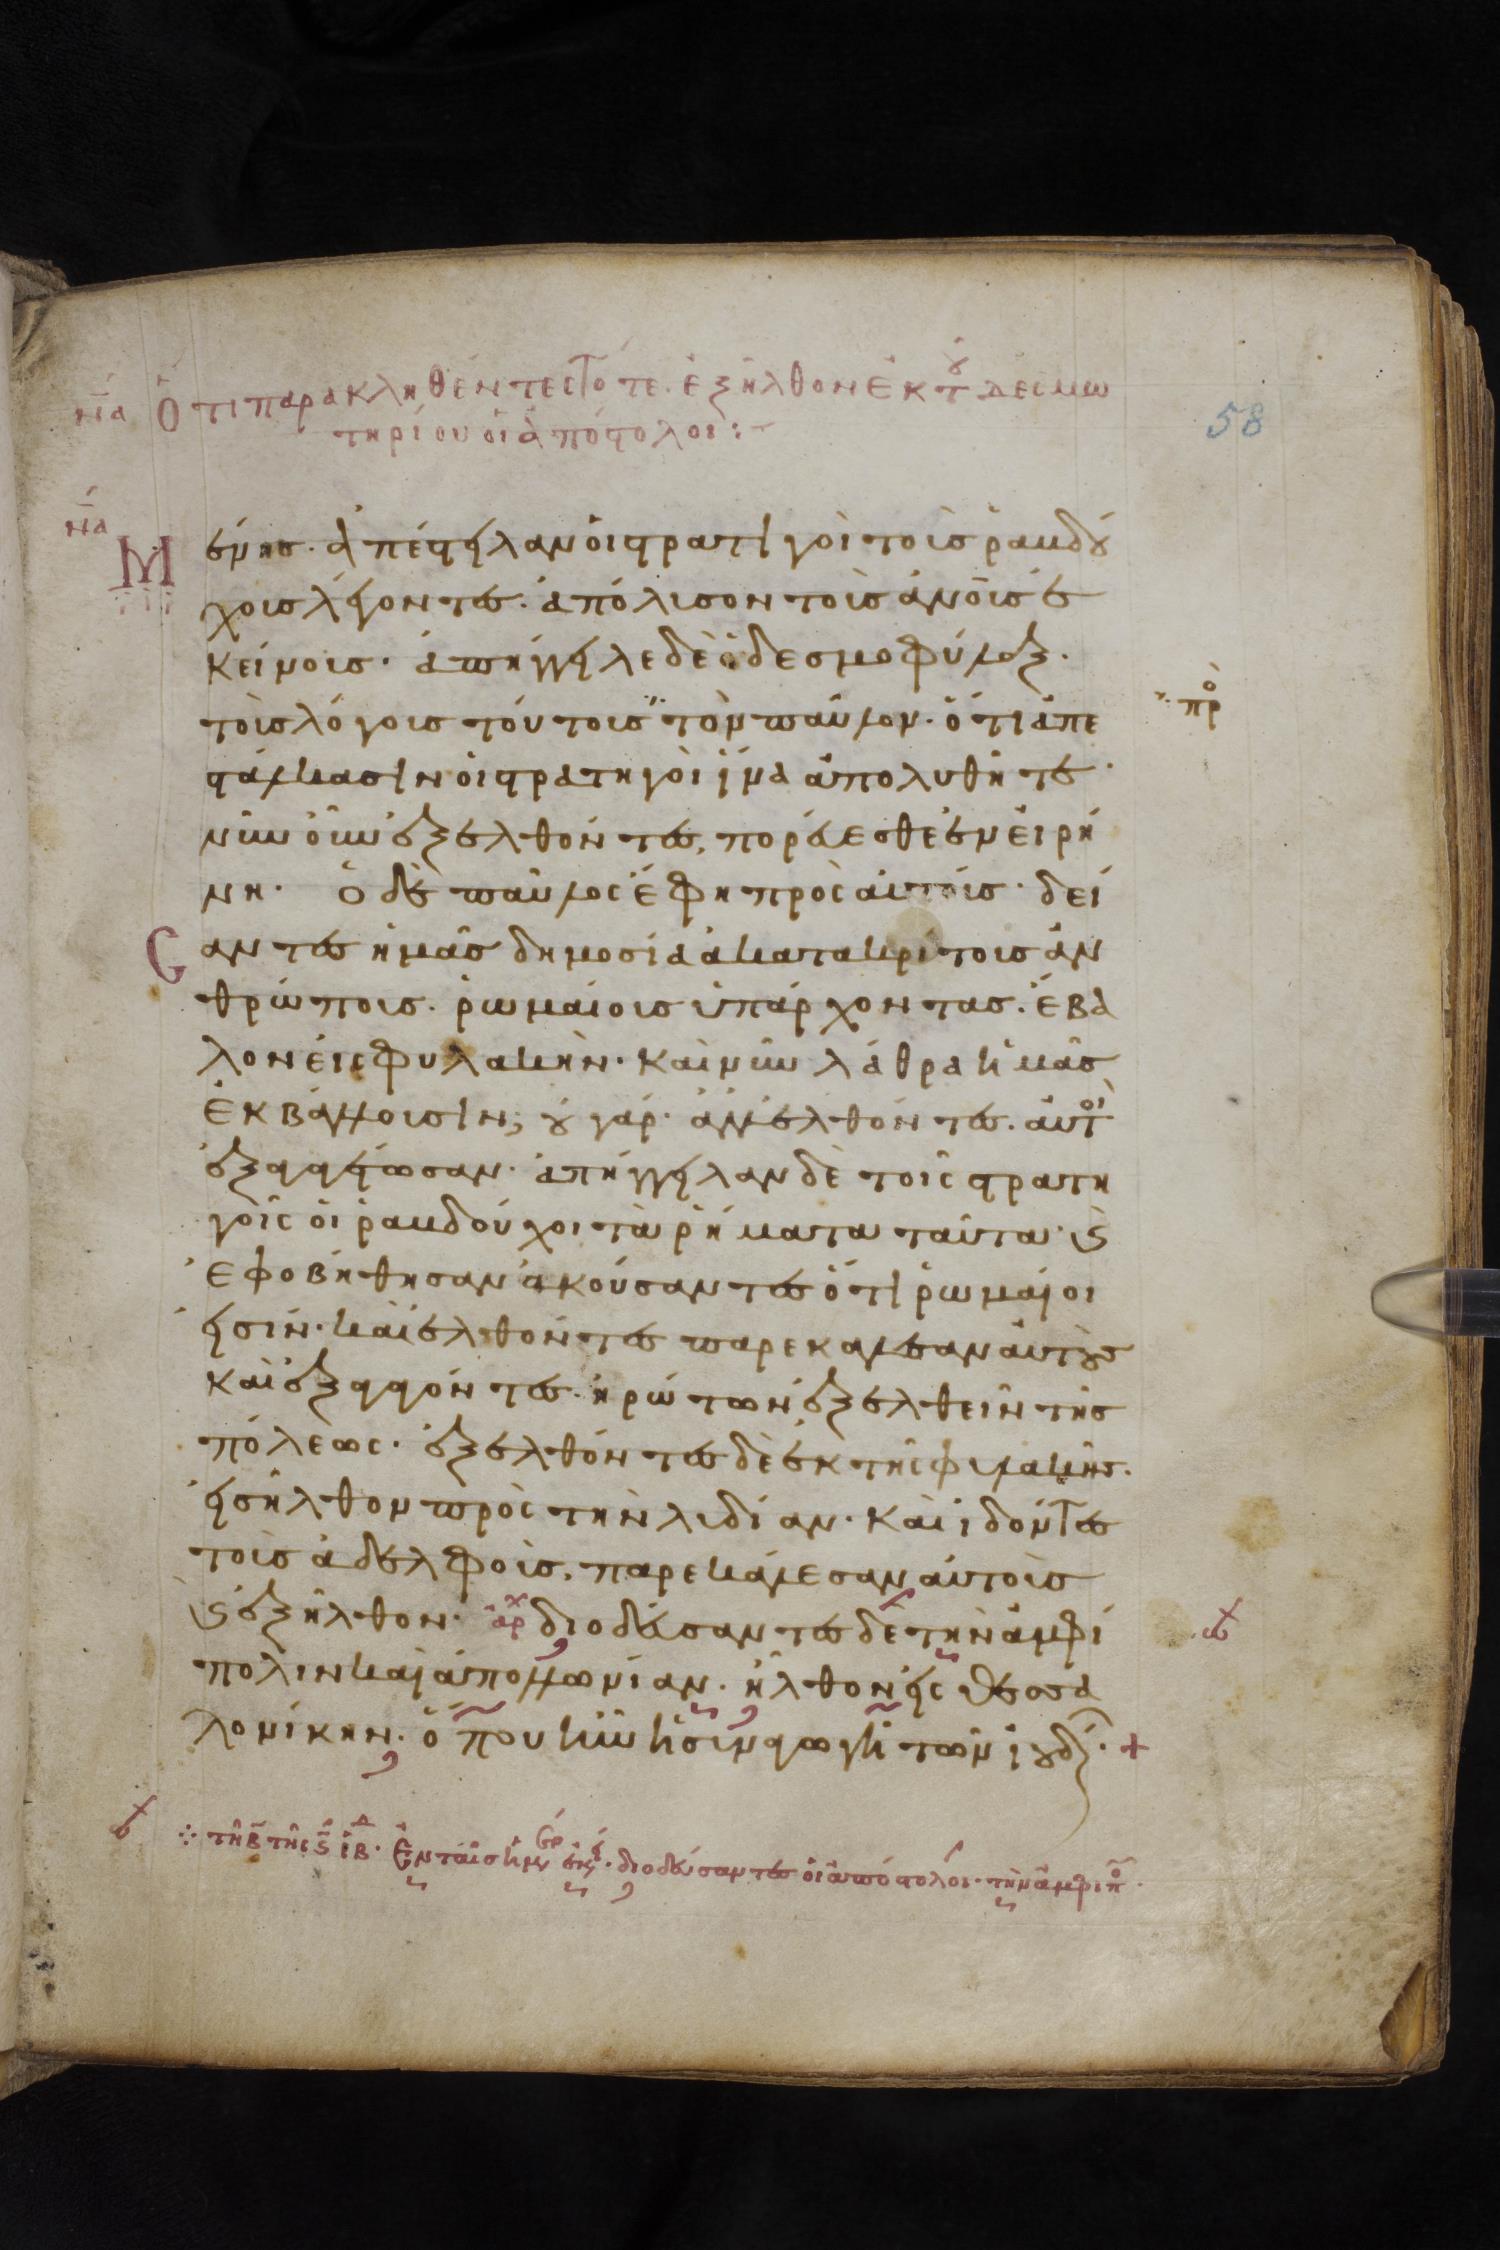 να Ὅτι παρακληθέντες τότε. ἐξῆλθον ἐκ τοῦ δεσμω
τηρίου οἱ ἀπόστολοι :-
58
να
Μ ένης. ἀπέστειλαν οἱ στρατιγοὶ τοὶς ῥαβδού
χοις λέγοντες. ἀπόλισον τοὶς ἀνοις ἐ
κείνοις. ἀπήγγειλε δὲ ὁ δεσμοφύλαξ.
τοὶς λόγοις τούτοις τὸν παῦλον. ὅτι ἀπε
πρὸ
στάλκασιν οἱ στρατηγοὶ ἵνα ἀπολυθῆτε.
νῦν οὖν ἐξελθόντες, πορεύεσθε ἐν εἰρή
νη. Ὁ δὲ παῦλος ἔφη πρὸς αὐτοίς. δεί
αντες ἡμᾶς δημοσία ἀκατακρίτοις ἀν
θρώποις. ῥωμαίοις ὑπάρχοντας. ἔβα
λον εἰς φυλακὴν. καὶ νῦν λάθρα ἡμᾶς
ἐκβάλλοισιν; οὐ γάρ. ἀλλ' ἐλθόντες. αὐτοὶ
ἐξαγαγέτωσαν. ἀπήγγειλαν δὲ τοῖς στρατη
γοῖς οἱ ῥαβδούχοι τὰ ῥήματα ταῦτα. ϗ
ἐφοβήθησαν ἀκούσαντες ὅτι ῥωμαίοι
εἰσίν. καὶ ἐλθόντες παρεκάλεσαν αὐτοὺς
καὶ ἐξαγαγόντες. ἠρώτων ἐξελθεῖν τῆς
πόλεως. ἐξελθόντες δὲ ἐκ τῆς φιλακῆς.
εἰσῆλθον πρὸς τὴν λιδίαν. καὶ ἰδόντες
τοὶς ἀδελφοὶς, παρεκάλεσαν αὐτοὶς
ϗ ἐξῆλθον. ἀρχ διοδεύσαντες δὲ τὴν ἀμφί
πολιν καὶ ἀπολλωνίαν. ἦλθον εἰς θεσσα
λονίκην. ὅπου ἦν ἡ σιναγωγὴ τῶν ἰουδ. +
τῆ β τῆς ϛ ἑβδ. Ἐν ταῖς ἡμέρ ἐκεί. διοδεύσαντες οἱ ἀπόστολοι. τὴν ἀμφιπο.